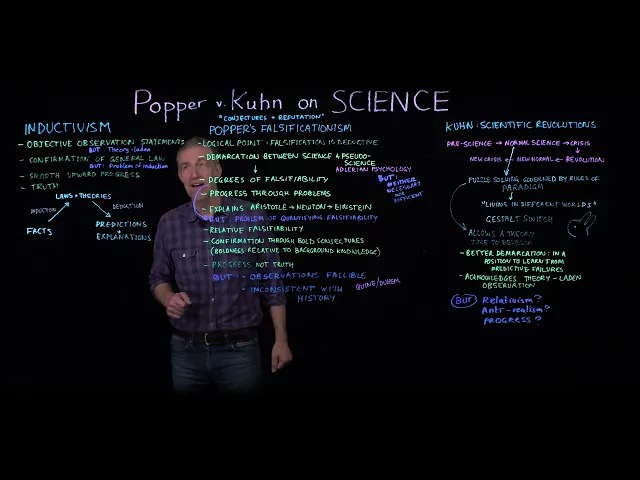 Popper v. Kuhn on SCIENCE
INDUCTIVISM
- OBJECTIVE OBSERVATION STATEMENTS
BUT: Theory-laden
- CONFIRMATION OF GENERAL LAW
BUT: Problem of induction
- SMOOTH UPWARD PROGRESS
- TRUTH
LAWS + THEORIES
INDUCTION
DEDUCTION
FACTS
PREDICTIONS
+ EXPLANATIONS
"CONJECTURES + REFUTATION"
POPPER'S FALSIFICATIONISM
- LOGICAL POINT: FALSIFICATION IS DEDUCTIVE
- DEMARCATION BETWEEN SCIENCE + PSEUDO-
SCIENCE
ADLERIAN PSYCHOLOGY
BUT:
NEITHER
NECESSARY
NOR
SUFFICIENT
- DEGREES OF FALSIFIABILITY
- PROGRESS THROUGH PROBLEMS
- EXPLAINS ARISTOTLE → NEWTON → EINSTEIN
BUT: PROBLEM OF QUANTIFYING FALSIFIABILITY
- RELATIVE FALSIFIABILITY
- CONFIRMATION THROUGH BOLD CONJECTURES
(BOLDNESS RELATIVE TO BACKGROUND KNOWLEDGE)
- PROGRESS NOT TRUTH
BUT: - OBSERVATIONS FALLIBLE
- INCONSISTENT WITH
HISTORY
QUINE/DUHEM
KUHN: SCIENTIFIC REVOLUTIONS
PRE-SCIENCE → NORMAL SCIENCE → CRISIS
NEW CRISIS ← NEW NORMAL ← REVOLUTION
PUZZLE SOLVING GOVERNED BY RULES OF
PARADIGM
"LIVING IN DIFFERENT WORLDS"
GESTALT SWITCH
ALLOWS A THEORY
TIME TO DEVELOP
- BETTER DEMARCATION: IN A
POSITION TO LEARN FROM
PREDICTIVE FAILURES
- ACKNOWLEDGES THEORY-LADEN
OBSERVATION
BUT Relativism?
Anti-realism?
PROGRESS?